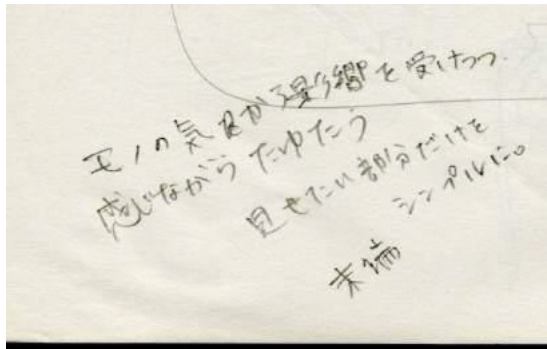 モノの気 影響を受けつつ.
感じながら たゆたう
見せたい部分だけを
シンプルに。
末端